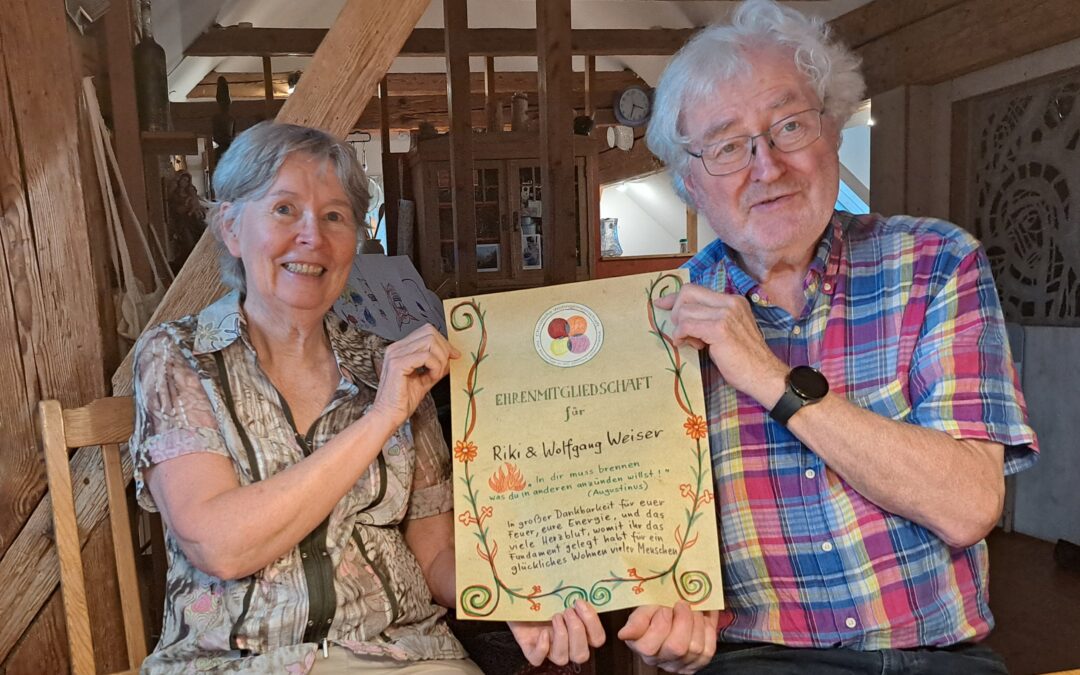 EHRENMITGLIEDSCHAFT
für
Riki & Wolfgang Weiser
„In dir muss brennen
was du in anderen anzünden willst!"
(Augustinus)
In großer Dankbarkeit für euer
Feuer, eure Energie, und das
viele Herzblut, womit ihr das
Fundament gelegt habt für ein
glückliches Wohnen vieler Menschen